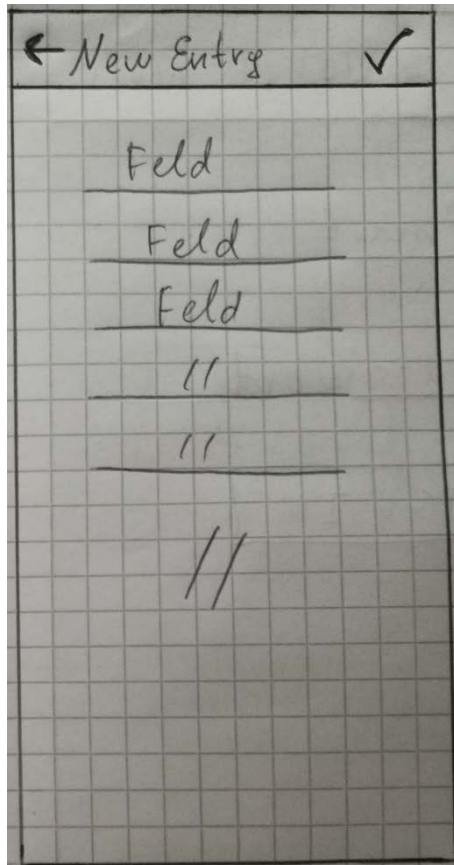 ← New Entry ✓
Feld
Feld
Feld
//
//
//